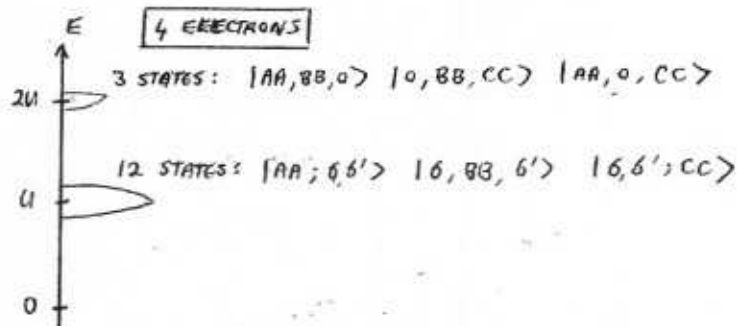 E
4 ELECTRONS
3 STATES: |AA,BB,0> |0,BB,CC> |AA,0,CC>
2U
12 STATES: |AA; б,б'> |б,BB,б'> |б,б'; CC>
U
0